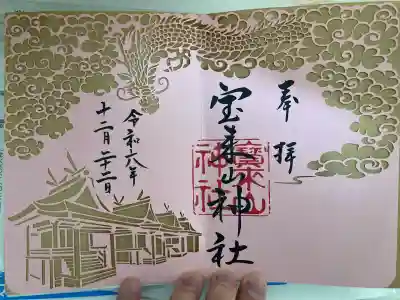 奉拝
宝来山神社
寳来山
神社
令和六年
十二月二十二日